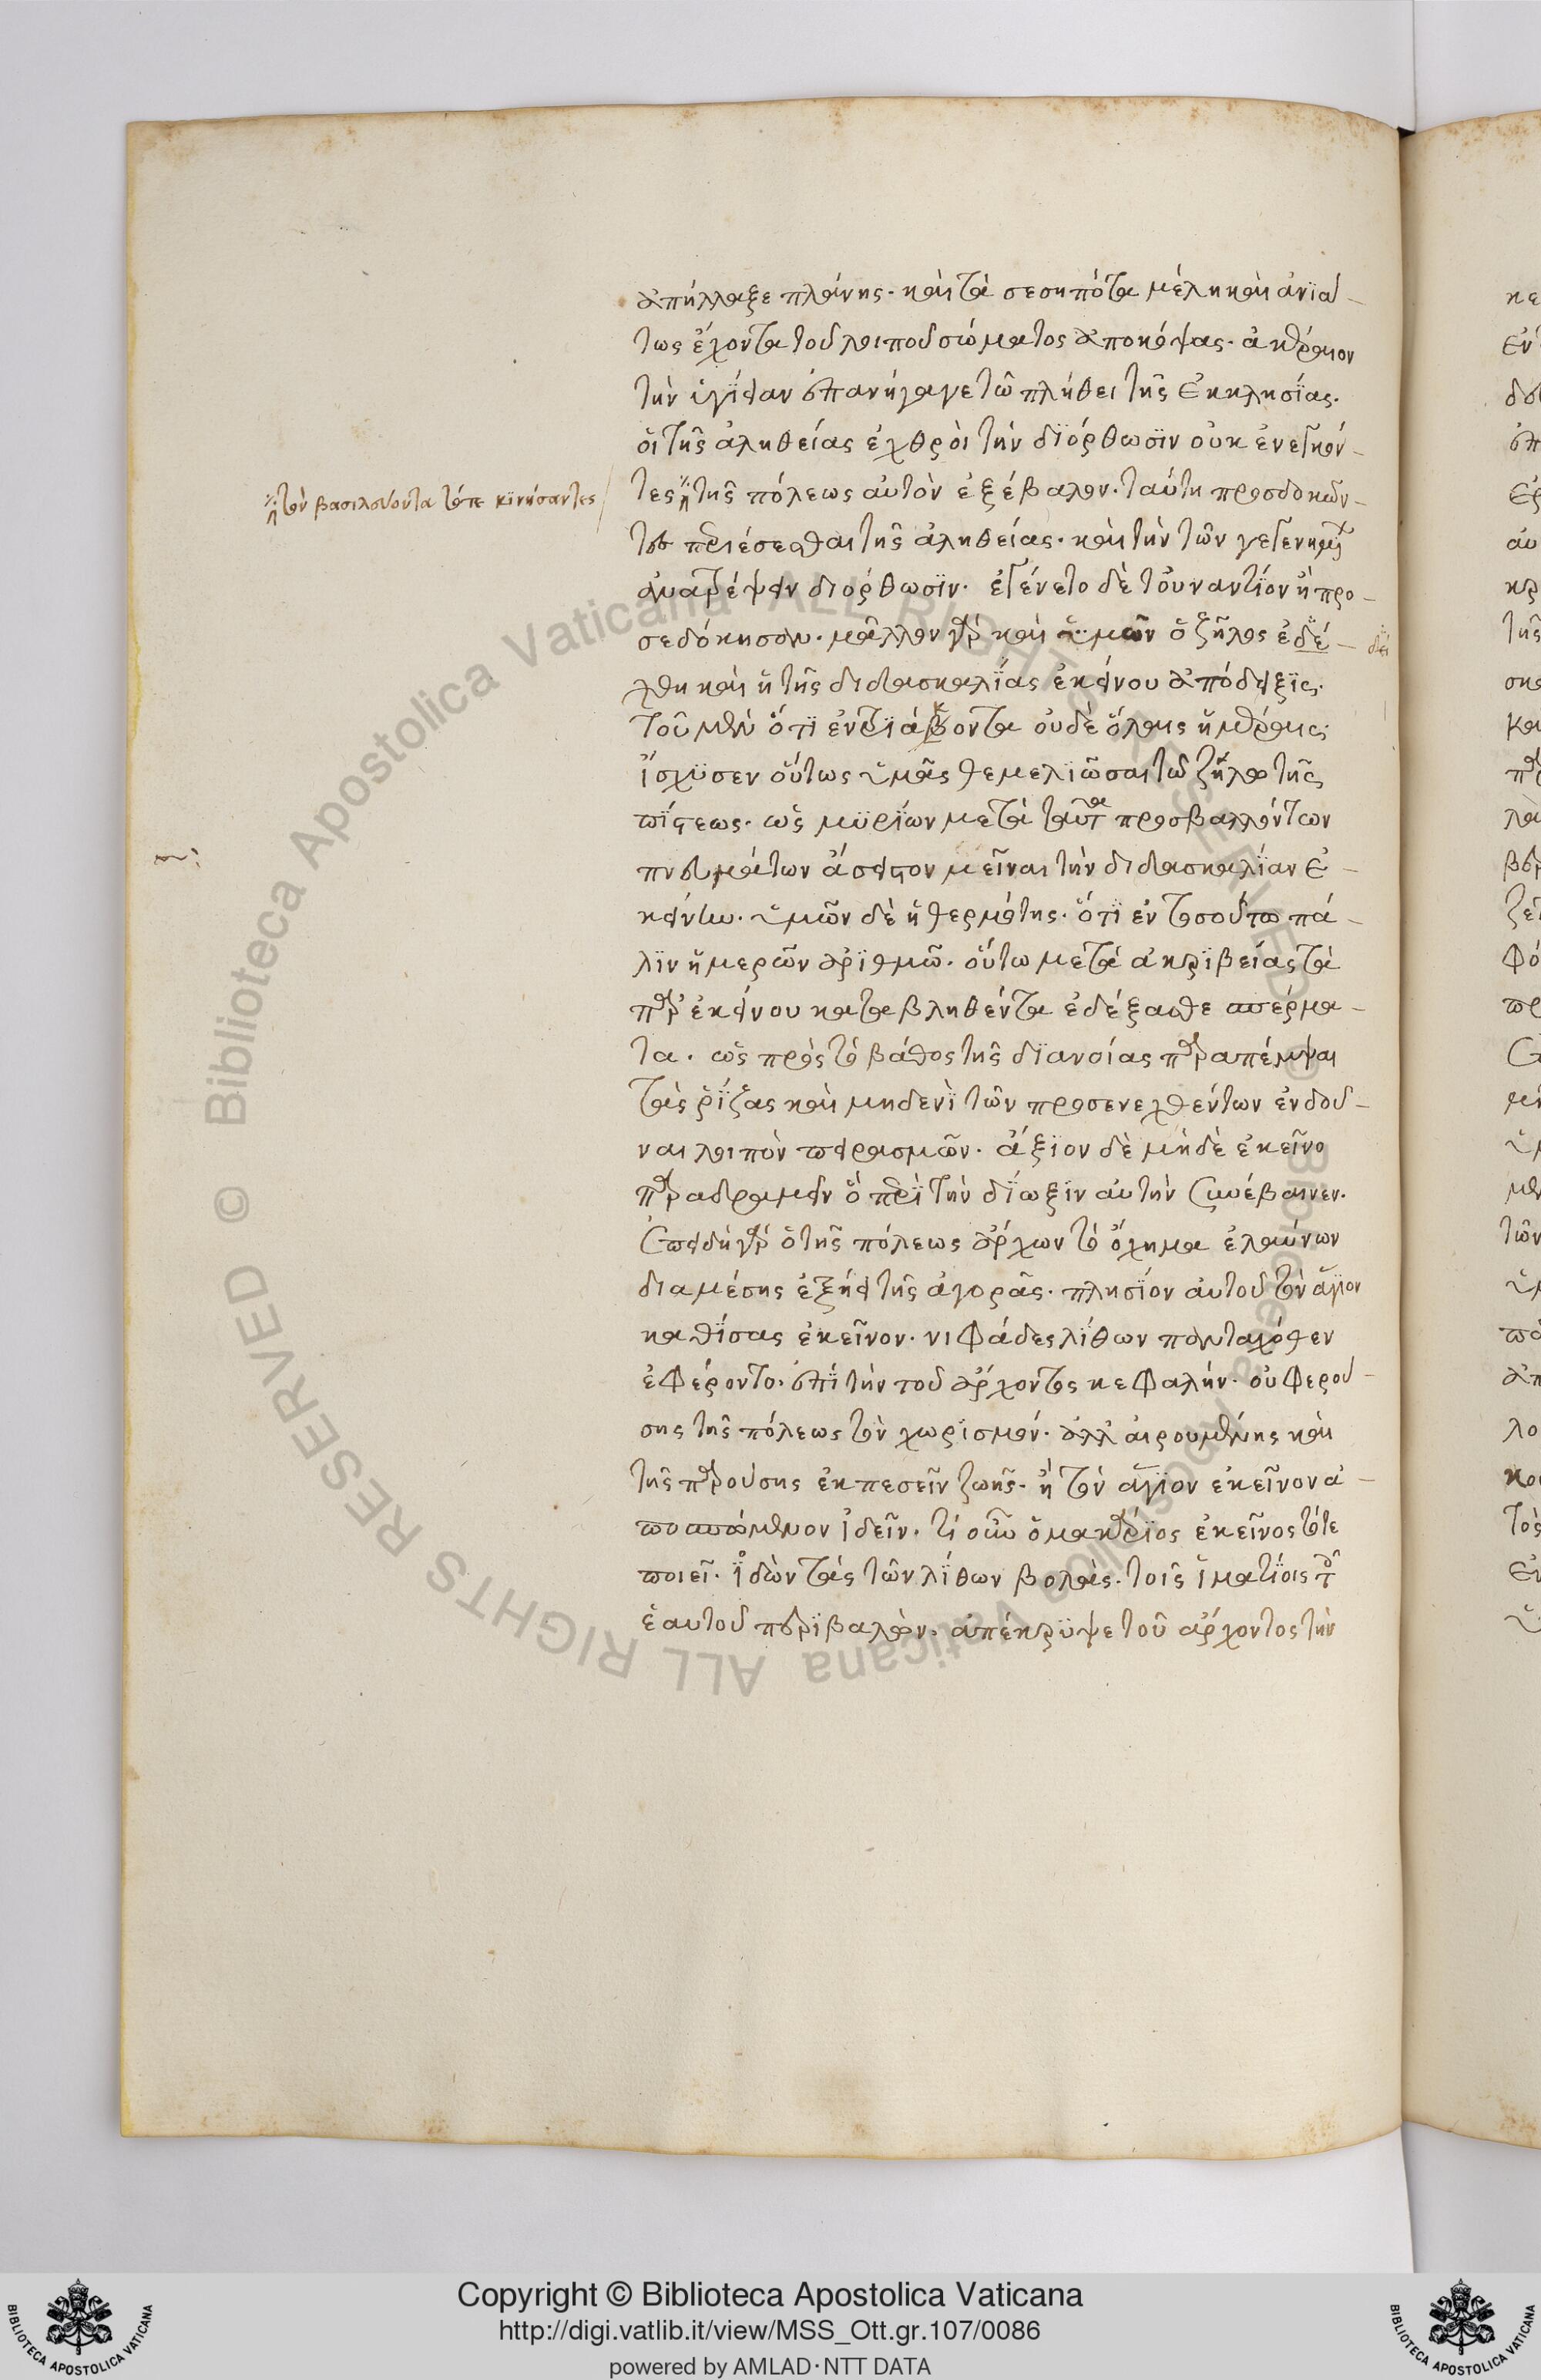 ἀπήλλαξε πλάνης. καὶ τὰ σεσηπότα μέλη καὶ ἀνϊά-
τως ἔχοντα τοῦ λοιποῦ σώματος ἀποκόψας. ἀκέραιον
τὴν ὑγΐειαν ἐπανήγαγε τῶ πλήθει τῆς ἐκκλησΐας.
οἱ τῆς ἀληθείας ἐχθροὶ τὴν δϊόρθωσϊν οὐκ ἐνεγκόν-
τες τῆς πόλεως αὐτὸν ἐξέβαλον. ταύτη προσδοκῶν-
τες περιέσεσθαι τῆς ἀληθείας. καὶ τὴν τῶν γεγενημένων
ἀνατρέψειν διόρθωσϊν. ἐγένετο δὲ τοὐναντΐον ἢ προ-
σεδόκησαν. μᾶλλον γὰρ καὶ ὑμῶν ὁ ζῆλος ἐδέ-
χθη καὶ ἡ τῆς διδασκαλΐας ἐκείνου ἀπόδειξϊς.
τοῦ μὲν ὅτϊ ἐν τρϊάκοντα οὐδὲ ὅλαις ἡμέραις
ἴσχϋσεν οὕτως ὑμᾶς θεμελϊῶσαι τῶ ζήλω τῆς
πίστεως. ὡς μϋρΐων μετὰ ταῦτα προσβαλλόντων
πνευμάτων ἄσειστον μεῖναι τὴν διδασκαλΐαν ἐ-
κείνω. ὑμῶν δὲ ἡ θερμότης. ὅτϊ ἐν τοσούτω πά-
λϊν ἡμερῶν ἀρϊθμῶ. οὕτω μετὰ ἀκρϊβείας τὰ
παρ' ἐκείνου καταβληθέντα ἐδέξασθε σπέρμα-
τα. ὡς πρὸς τὸ βάθος τῆς δϊανοίας παραπέμψαι
τὰς ῥΐζας καὶ μηδενΐ τῶν προσενεχθέντων ἐνδοῦ-
ναι λοιπὸν πειρασμῶν. ἄξϊον δὲ μὴδὲ ἐκεῖνο
παραδραμεῖν ὃ περΐ τὴν δΐωξϊν αὐτὴν συνέβαινεν.
ἐπειδὴ γὰρ ὁ τῆς πόλεως ἄρχων τὸ ὄχημα ἐλαύνων
διαμέσης ἐξήει τῆς ἀγορᾶς. πλησΐον αὐτοῦ τὸν ἅγϊον
καθΐσας ἐκεῖνον. νιφάδες λΐθων πανταχόθεν
ἐφέροντο. ἐπΐ τὴν τοῦ ἄρχοντος κεφαλήν. οὐ φερού-
σης τῆς πόλεως τὸν χωρϊσμόν. ἀλλ' αἱρουμένης καὶ
τῆς παρούσης ἐκπεσεῖν ζωῆς. ἢ τὸν ἅγϊον ἐκεῖνον ἀ-
ποσπώμενον ἰδεῖν. τί οὖν ὁ μακάρϊος ἐκεῖνος τότε
ποιεῖ. ἰδὼν τὰς τῶν λΐθων βολὰς. τοῖς ἱματΐοις τοῖς
ἑαυτοῦ περϊβαλὼν. ἀπέκρϋψε τοῦ ἄρχοντος τὴν
τὸν βασιλεύοντα τότε κϊνήσαντες
Copyright © Biblioteca Apostolica Vaticana
http://digi.vatlib.it/view/MSS_Ott.gr.107/0086
powered by AMLAD·NTT DATA
BIBLIOTECA APOSTOLICA VATICANA
BIBLIOTECA APOSTOLICA VATICANA
© Biblioteca Apostolica Vaticana ALL RIGHTS RESERVED
© Biblioteca Apostolica Vaticana ALL RIGHTS RESERVED